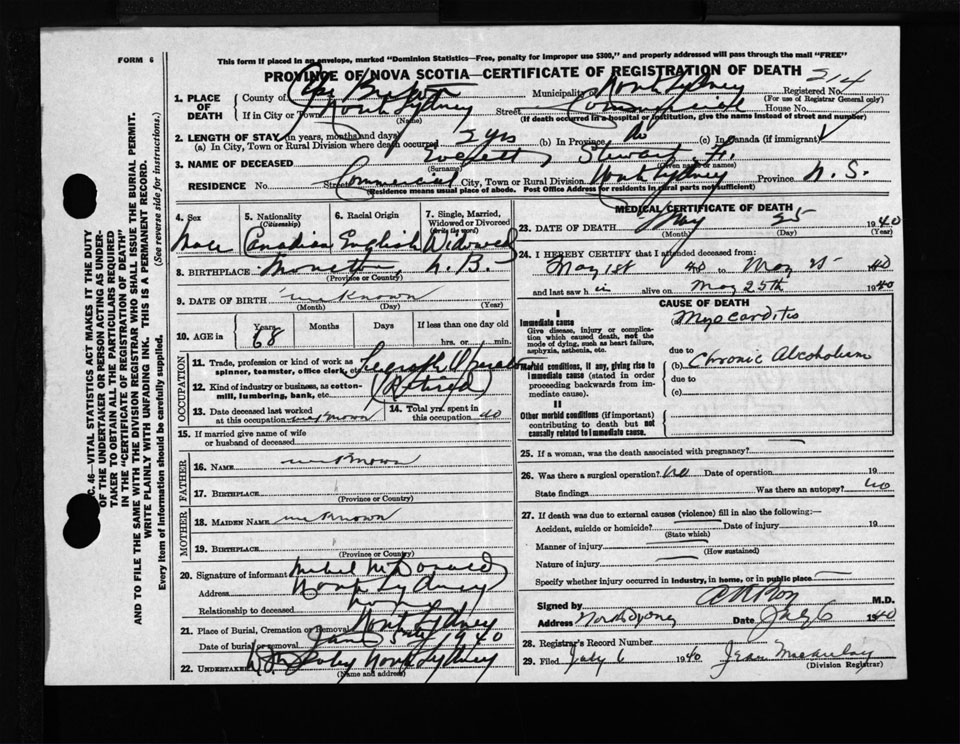 FORM 6
This form if placed in an envelope, marked "Dominion Statistics—Free, penalty for improper use $300," and properly addressed will pass through the mail "FREE"
PROVINCE OF NOVA SCOTIA—CERTIFICATE OF REGISTRATION OF DEATH
1. PLACE OF DEATH
County of Cape Breton Municipality of North Sydney Registered No. 214
(For use of Registrar General only)
If in City or Town North Sydney Street Commercial House No.
(Name) (If death occurred in a hospital or institution, give the name instead of street and number)
2. LENGTH OF STAY (in years, months and days)
(a) In City, Town or Rural Division where death occurred 2 yrs (b) In Province do (c) In Canada (if immigrant)
3. NAME OF DECEASED Everett, Stewart
(Surname) (Given name or names)
RESIDENCE No. Street Commercial City, Town or Rural Division North Sydney Province N. S.
(Residence means usual place of abode. Post Office Address for residents in rural parts not sufficient)
4. Sex Male
5. Nationality (Citizenship) Canadian
6. Racial Origin English
7. Single, Married, Widowed or Divorced (Write the word) Widowed
8. BIRTHPLACE N. B.
(Province or Country)
9. DATE OF BIRTH unknown
(Month) (Day) (Year)
10. AGE in Years 68 Months Days If less than one day old
hrs. or min.
OCCUPATION
11. Trade, profession or kind of work as spinner, teamster, office clerk, etc. Telegraph Operator
12. Kind of industry or business, as cotton-mill, lumbering, bank, etc. (Retired)
13. Date deceased last worked at this occupation unknown
14. Total yrs. spent in this occupation 40
15. If married give name of wife or husband of deceased
FATHER
16. NAME unknown
17. BIRTHPLACE
(Province or Country)
MOTHER
18. MAIDEN NAME unknown
19. BIRTHPLACE
(Province or Country)
20. Signature of informant Mabel McDonald
Address North Sydney
Relationship to deceased
21. Place of Burial, Cremation or Removal North Sydney
Date of burial or removal 1940
22. UNDERTAKER North Sydney
(Name and address)
MEDICAL CERTIFICATE OF DEATH
23. DATE OF DEATH May 25 1940
(Month) (Day) (Year)
24. I HEREBY CERTIFY that I attended deceased from:
May 1st 40 to May 25 40
and last saw h im alive on May 25th 1940
CAUSE OF DEATH
I
Immediate cause
Give disease, injury or complication which caused death, not the mode of dying, such as heart failure, asphyxia, asthenia, etc.
Myocarditis
due to
Morbid conditions, if any, giving rise to immediate cause (stated in order proceeding backwards from immediate cause).
(b) Chronic Alcoholism
due to
(c)
II
Other morbid conditions (if important) contributing to death but not causally related to immediate cause.
25. If a woman, was the death associated with pregnancy?
26. Was there a surgical operation? no Date of operation 19
State findings Was there an autopsy? no
27. If death was due to external causes (violence) fill in also the following:—
Accident, suicide or homicide? Date of injury 19
(State which)
Manner of injury
(How sustained)
Nature of injury
Specify whether injury occurred in industry, in home, or in public place
Signed by M.D.
Address North Sydney Date July 6 1940
28. Registrar's Record Number
29. Filed July 6 1940 Jean Macaulay
(Division Registrar)
C. 46—VITAL STATISTICS ACT MAKES IT THE DUTY
OF THE UNDERTAKER OR PERSON ACTING AS UNDER-
TAKER TO OBTAIN ALL THE PARTICULARS REQUIRED
IN THE "CERTIFICATE OF REGISTRATION OF DEATH"
AND TO FILE THE SAME WITH THE DIVISION REGISTRAR WHO SHALL ISSUE THE BURIAL PERMIT.
WRITE PLAINLY WITH UNFADING INK. THIS IS A PERMANENT RECORD.
Every item of information should be carefully supplied. (See reverse side for instructions.)